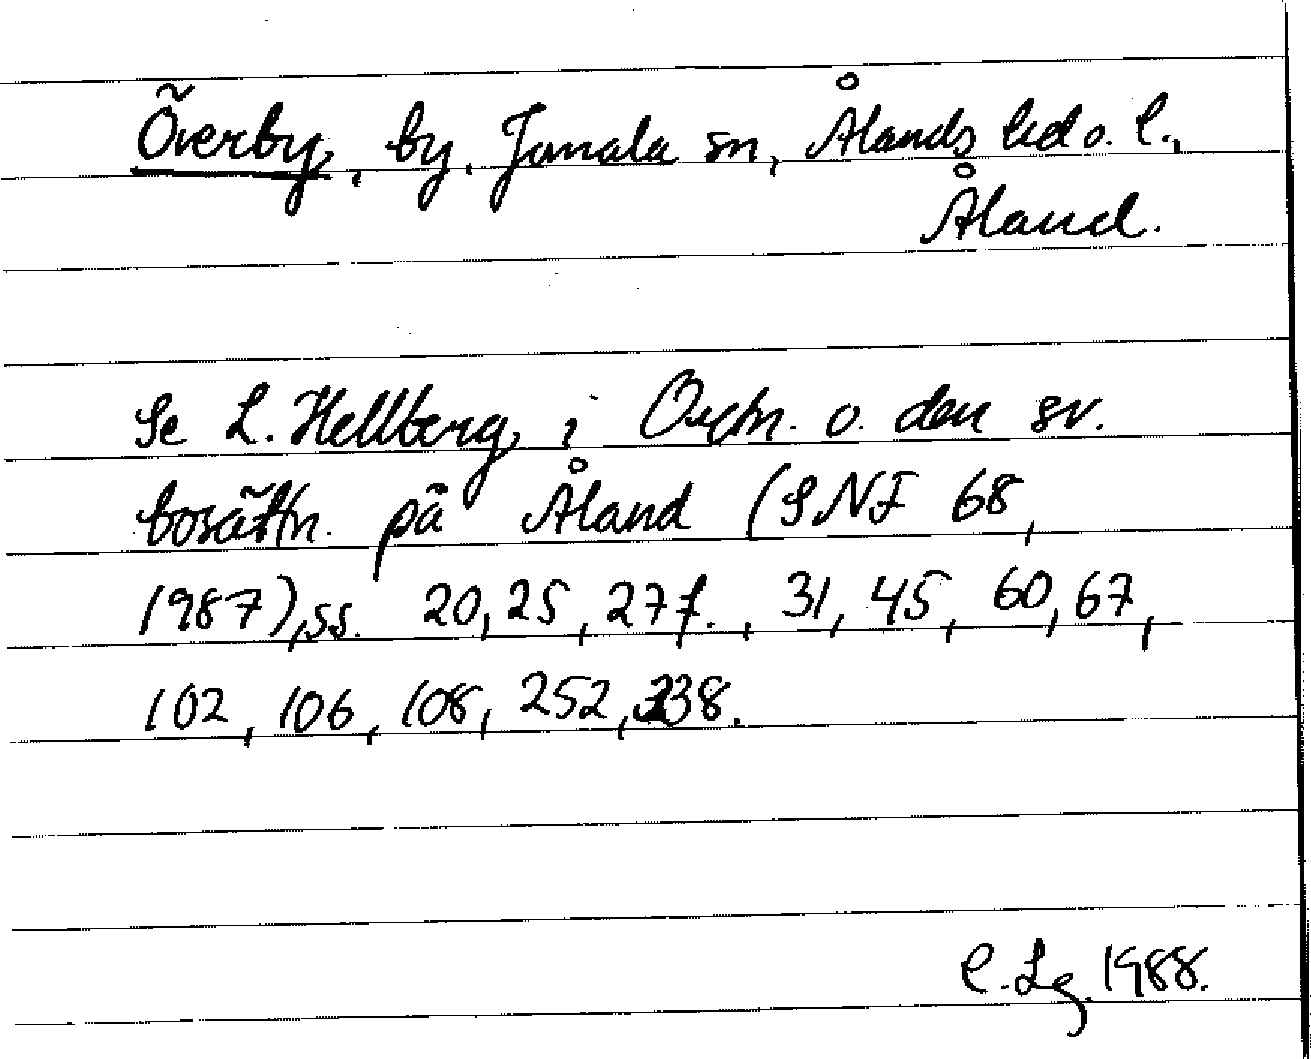 Överby, by, Jomala sn, Ålands hd o. l.,
Åland.
Se L. Hellberg, i Ortn. o. den sv.
bosättn. på Åland (SNF 68,
1987), ss. 20, 25, 27 f., 31, 45, 60, 67,
102, 106, 108, 252, 238.
C. Lg. 1988.